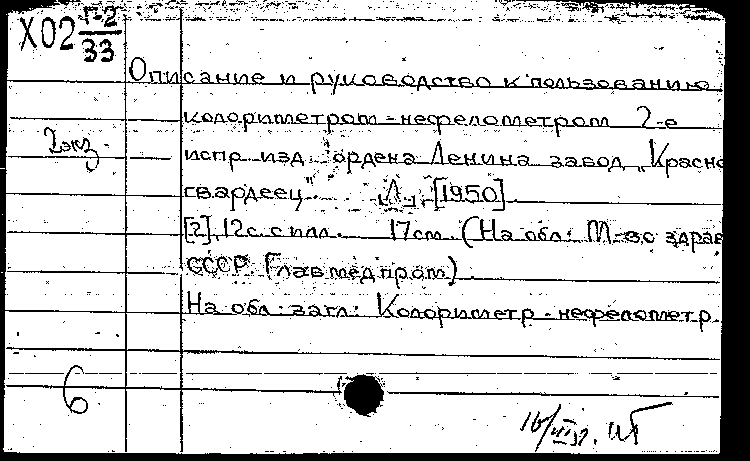 Х02 Г-2
33
Описание и руководство к пользованию
колориметром-нефелометром 2-е
2 экз
испр изд. ордена Ленина завод „Красно
гвардеец". „Л.", [1950]
[2], 12с. с илл. 17см. (На обл: М-во здрав
СССР. Главмедпром).
На обл: загл: Колориметр-нефелометр.
6